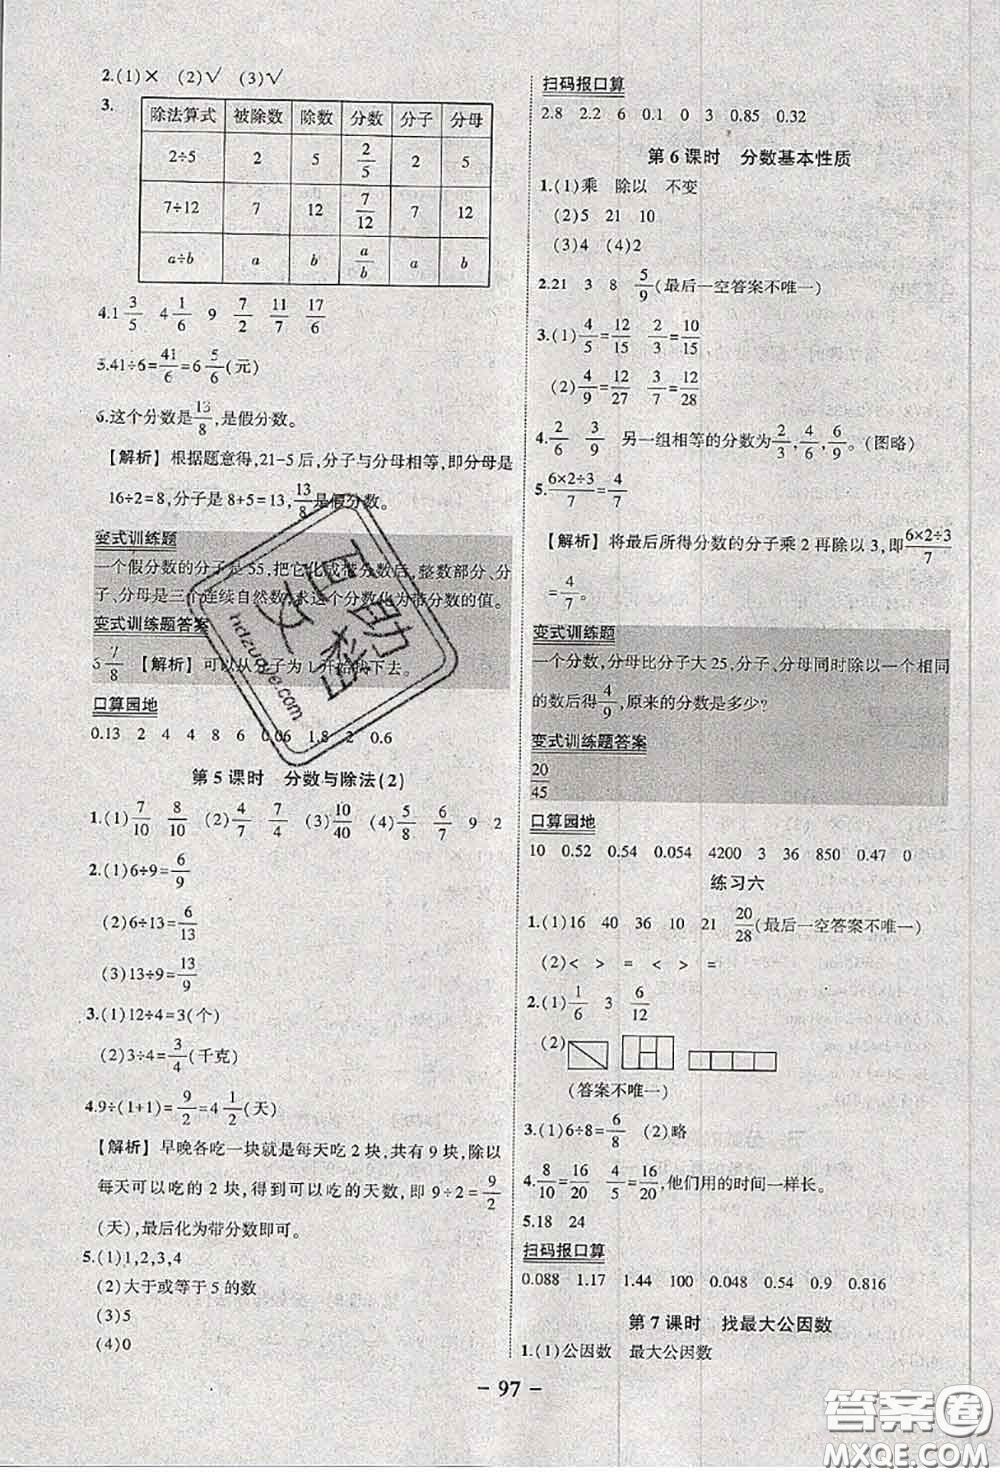 2.(1)× (2)√ (3)√
3.
除法算式 被除数 除数 分数 分子 分母
2÷5 2 5 2/5 2 5
7÷12 7 12 7/12 7 12
a÷b a b a/b a b
4.1 3/5 4 1/6 9 7/2 11/7 17/6
5.41÷6=41/6=6 5/6(元)
6.这个分数是13/8,是假分数。
【解析】根据题意得,21-5后,分子与分母相等,即分母是
16÷2=8,分子是8+5=13,13/8是假分数。
变式训练题
一个假分数的分子是55,把它化成带分数后,整数部分、分
子、分母是三个连续自然数,求这个分数化为带分数的值。
变式训练题答案
6 7/8 【解析】可以从分子为1开始找下去。
口算园地
0.13 2 4 4 8 6 0.06 1.8 2 0.6
第5课时 分数与除法(2)
1.(1)7/10 8/10 (2)4/7 7/4 (3)10/40 (4)5/8 6/7 9 2
2.(1)6÷9=6/9
(2)6÷13=6/13
(3)13÷9=13/9
3.(1)12÷4=3(个)
(2)3÷4=3/4(千克)
4.9÷(1+1)=9/2=4 1/2(天)
【解析】早晚各吃一块就是每天吃2块,共有9块,除以
每天可以吃的2块,得到可以吃的天数,即9÷2=9/2
(天),最后化为带分数即可。
5.(1)1,2,3,4
(2)大于或等于5的数
(3)5
(4)0
扫码报口算
2.8 2.2 6 0.1 0 3 0.85 0.32
第6课时 分数基本性质
1.(1)乘 除以 不变
(2)5 21 10
(3)4 (4)2
2.21 3 8 5/9(最后一空答案不唯一)
3.(1)4/5=12/15 2/3=10/15
(2)4/9=12/27 3/7=12/28
4.2/6 3/9 另一组相等的分数为2/3,4/6,6/9。(图略)
5.6×2÷3/7=4/7
【解析】将最后所得分数的分子乘2再除以3,即6×2÷3/7
=4/7。
变式训练题
一个分数,分母比分子大25,分子、分母同时除以一个相同
的数后得4/9,原来的分数是多少?
变式训练题答案
20/45
口算园地
10 0.52 0.54 0.054 4200 3 36 850 0.47 0
练习六
1.(1)16 40 36 10 21 20/28(最后一空答案不唯一)
(2)< > = < > =
2.(1)1/6 3 6/12
(2)
(答案不唯一)
3.(1)6÷8=6/8 (2)略
4.8/10=16/20 4/5=16/20,他们用的时间一样长。
5.18 24
扫码报口算
0.088 1.17 1.44 100 0.048 0.54 0.9 0.816
第7课时 找最大公因数
1.(1)公因数 最大公因数
- 97 -
答案圈
MXQE.COM